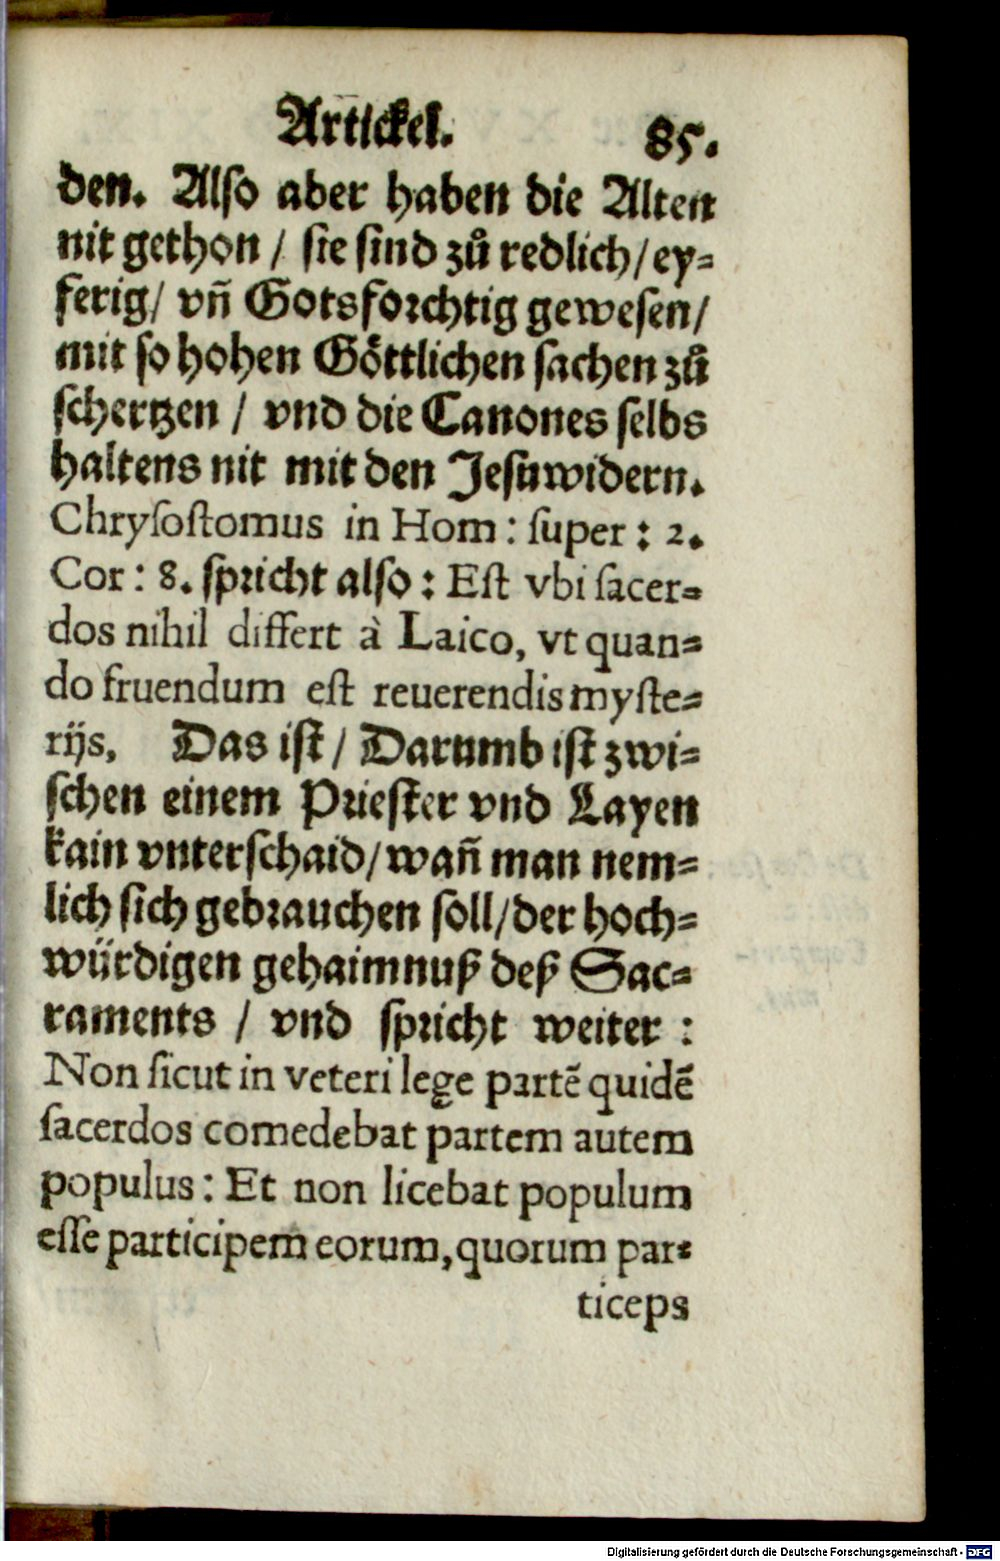 Artickel. 85.
den. Also aber haben die Alten
nit gethon / sie sind zů redlich / ey=
ferig / vñ Gotsforchtig gewesen /
mit so hohen Göttlichen sachen zů
schertzen / vnd die Canones selbs
haltens nit mit den Jesuwidern.
Chrysostomus in Hom : super : 2.
Cor : 8. spricht also : Est vbi sacer=
dos nihil differt à Laico, vt quan=
do fruendum est reuerendis myste=
rijs. Das ist / Darumb ist zwi=
schen einem Priester vnd Layen
kain vnterschaid / wañ man nem=
lich sich gebrauchen soll / der hoch=
würdigen gehaimnuß deß Sac=
raments / vnd spricht weiter :
Non sicut in veteri lege partẽ quidẽ
sacerdos comedebat partem autem
populus : Et non licebat populum
esse participem eorum, quorum par=
ticeps
Digitalisierung gefördert durch die Deutsche Forschungsgemeinschaft - DFG